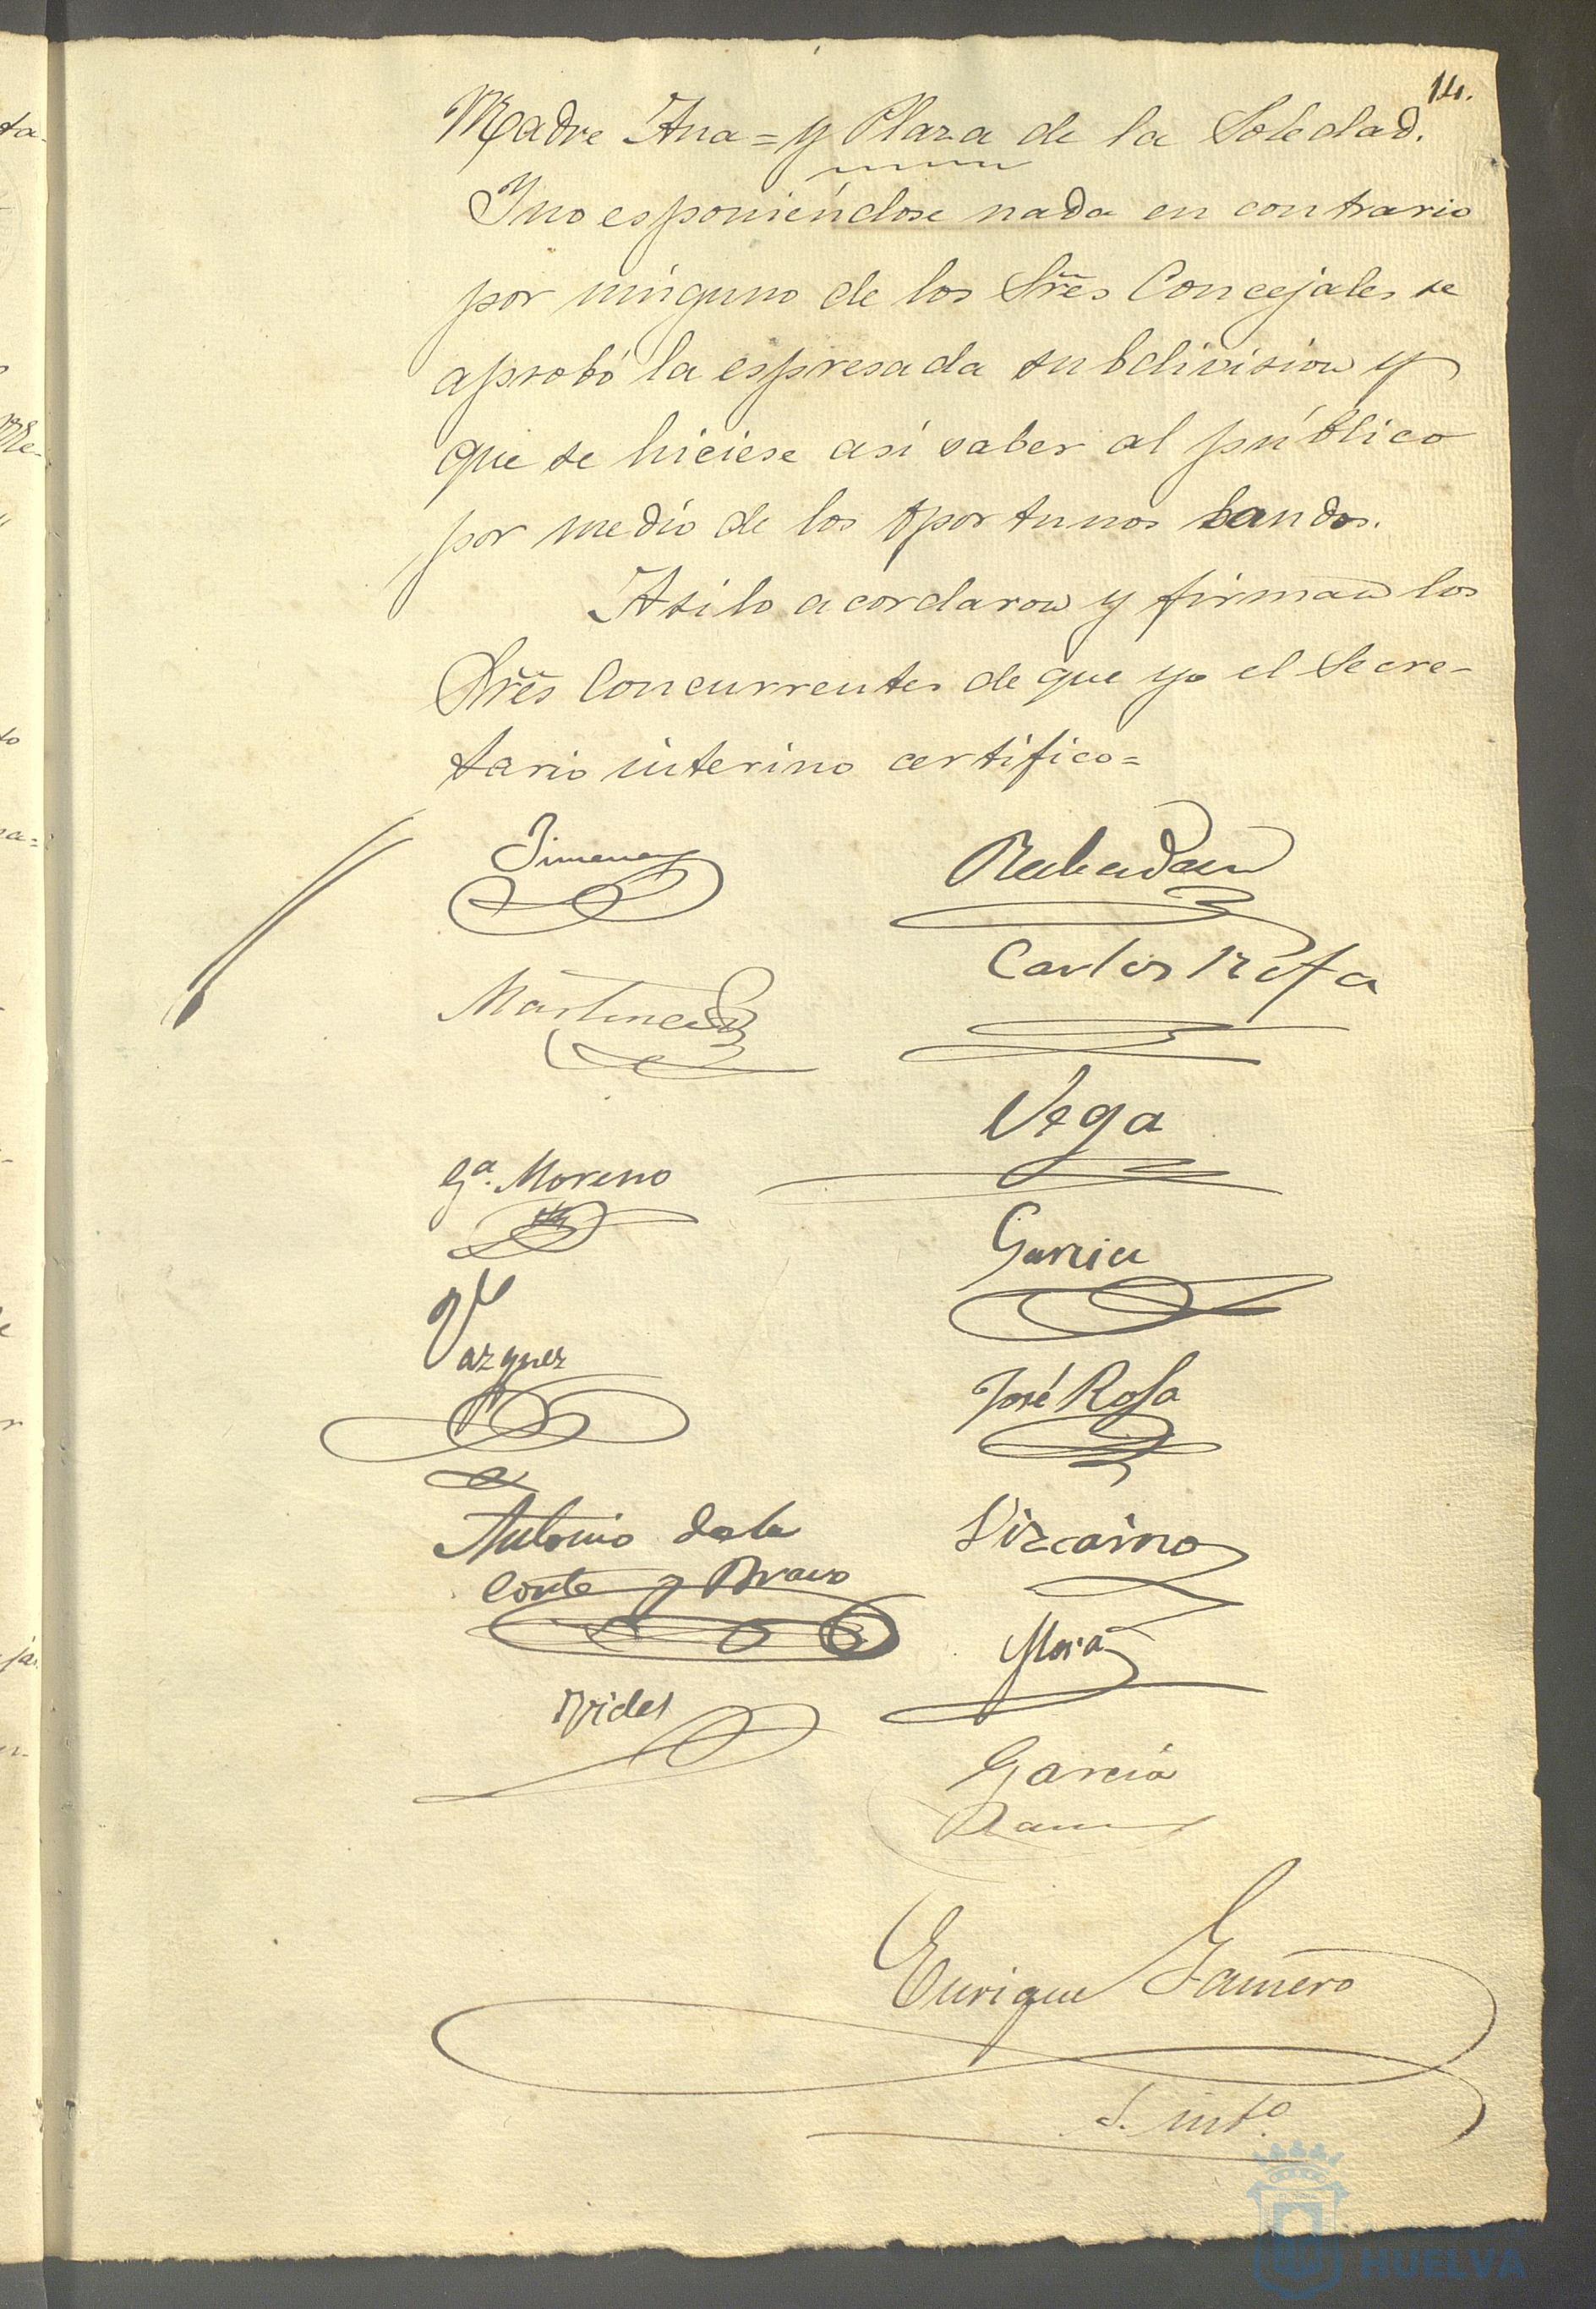 14.
Madre Ana = y Plaza de la Soledad.
Y no esponiéndose nada en contrario
por ninguno de los Sres Concejales se
aprobó la espresada subdivision y
que se hiciese asi saber al público
por medio de los oportunos bandos.
Asi lo acordaron y firman los
Sres Concurrentes de que yo el Secre-
tario interino certifico =
Jimenez
Rabadan
Martinez
Carlos Rofa
Vega
Gª. Moreno
Garcia
Vazquez
José Rofa
Antonio de la
Corte y Bravo
Vizcaino
Mora
Vides
García
Ramos
Enrique Gamero
S. intº.
HUELVA